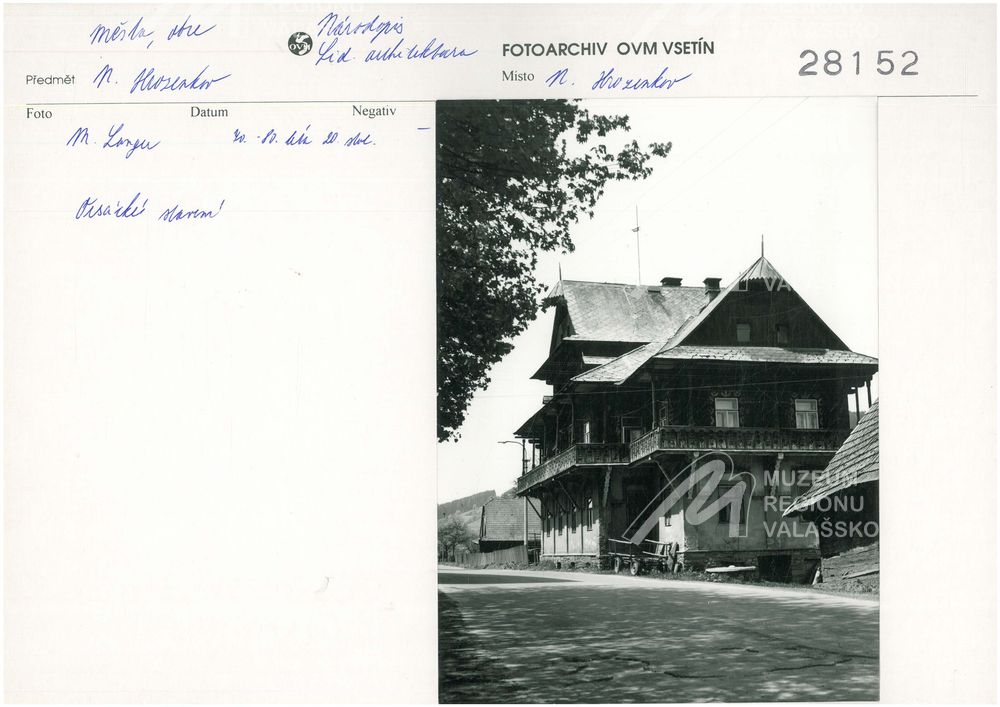 města, obce
Národopis
Lid. architektura
OVM
FOTOARCHIV OVM VSETÍN
28152
Předmět N. Hrozenkov
Místo N. Hrozenkov
Foto Datum Negativ
M. Langer 70.-80. léta 20. stol. –
stavení
MUZEUM
REGIONU
VALAŠSKO